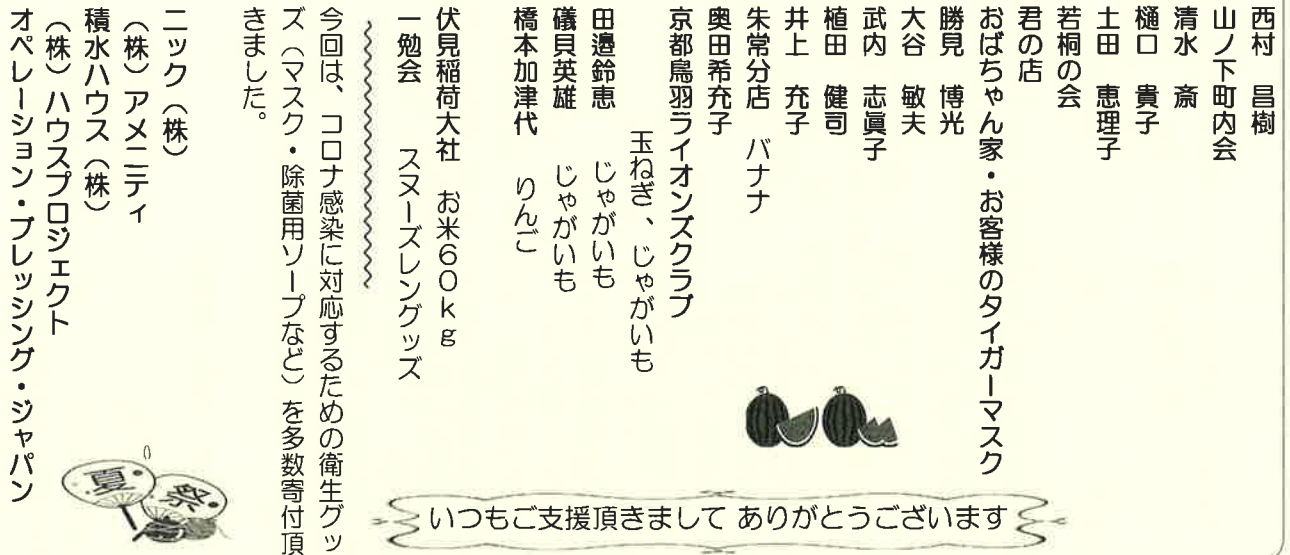 西村　昌樹
山ノ下町内会
清水　斎
樋口　貴子
土田　恵理子
若桐の会
君の店
おばちゃん家・お客様のタイガーマスク
勝見　博光
大谷　敏夫
武内　志眞子
植田　健司
井上　充子
朱常分店　バナナ
奥田希充子
京都鳥羽ライオンズクラブ
玉ねぎ、じゃがいも
田邉鈴恵　じゃがいも
礒貝英雄　じゃがいも
橋本加津代　りんご
伏見稲荷大社　お米６０ｋｇ
一勉会　スヌーズレングッズ
今回は、コロナ感染に対応するための衛生グッ
ズ（マスク・除菌用ソープなど）を多数寄付頂
きました。
ニック（株）
（株）アメニティ
積水ハウス（株）
（株）ハウスプロジェクト
オペレーション・ブレッシング・ジャパン
いつもご支援頂きまして ありがとうございます
夏
祭